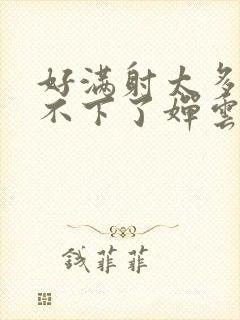 好满射太多
不下了婵雲
钱菲菲